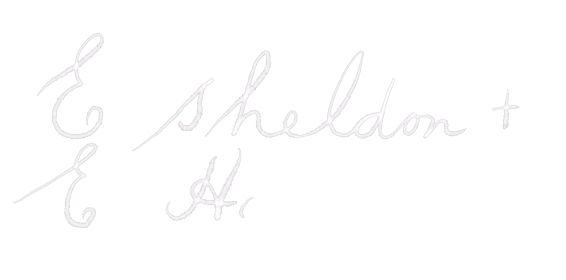 E Sheldon +
E H.